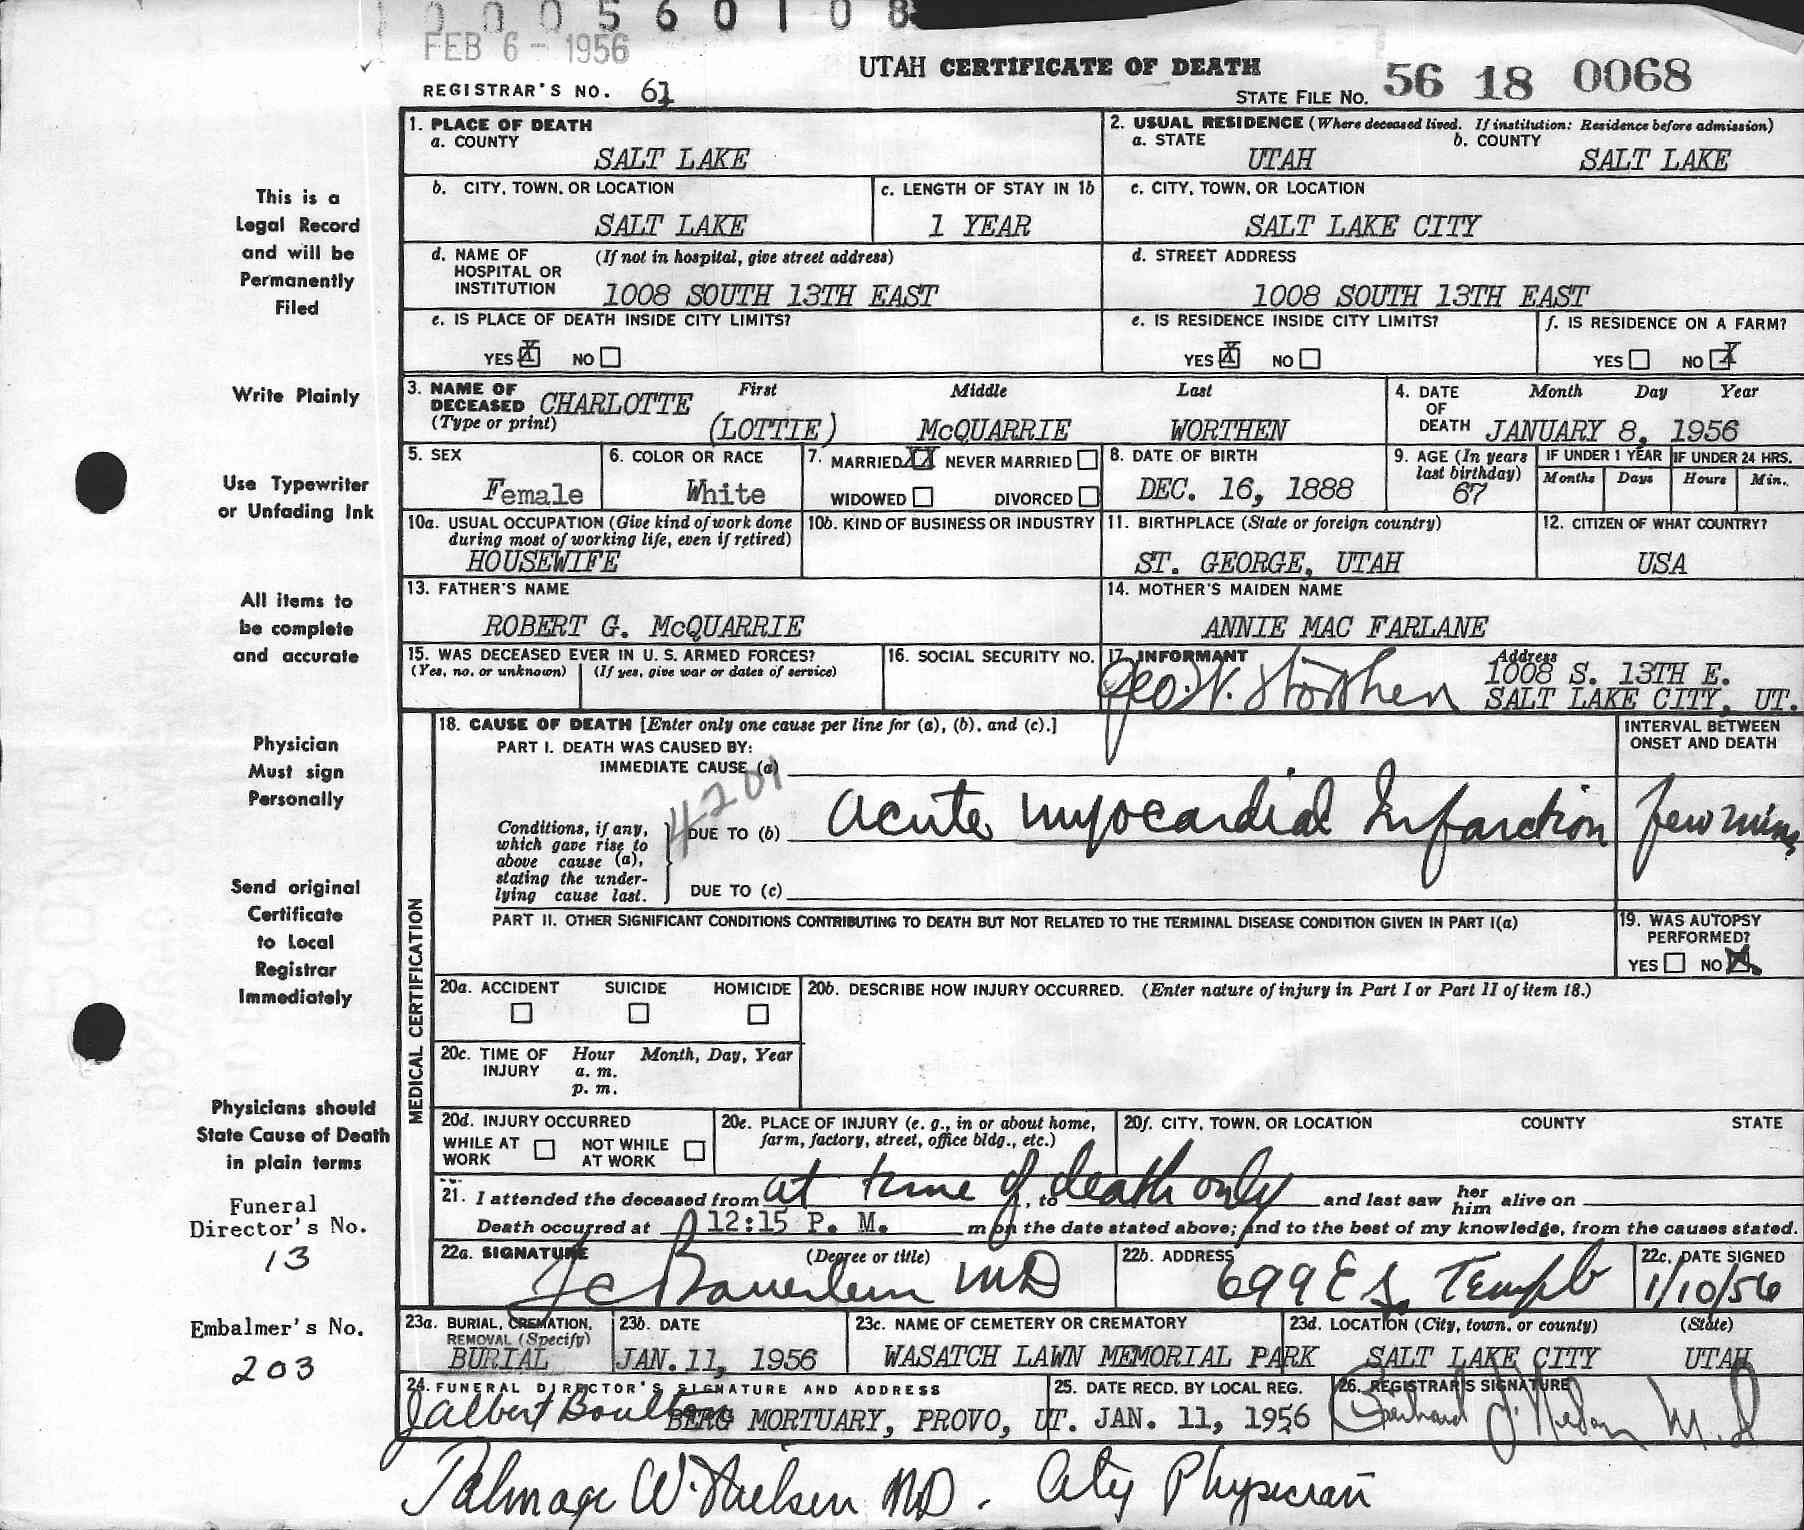 000560108
FEB 6 - 1956
UTAH CERTIFICATE OF DEATH
REGISTRAR'S NO. 61
STATE FILE NO. 56 18 0068
This is a
Legal Record
and will be
Permanently
Filed
Write Plainly
Use Typewriter
or Unfading Ink
All items to
be complete
and accurate
Physician
Must sign
Personally
Send original
Certificate
to Local
Registrar
Immediately
Physicians should
State Cause of Death
in plain terms
Funeral
Director's No.
13
Embalmer's No.
203
1. PLACE OF DEATH
a. COUNTY
SALT LAKE
2. USUAL RESIDENCE (Where deceased lived. If institution: Residence before admission)
a. STATE b. COUNTY
UTAH SALT LAKE
b. CITY, TOWN, OR LOCATION
SALT LAKE
c. LENGTH OF STAY IN 1b
1 YEAR
c. CITY, TOWN, OR LOCATION
SALT LAKE CITY
d. NAME OF (If not in hospital, give street address)
HOSPITAL OR
INSTITUTION 1008 SOUTH 13TH EAST
d. STREET ADDRESS
1008 SOUTH 13TH EAST
e. IS PLACE OF DEATH INSIDE CITY LIMITS?
YES X NO
e. IS RESIDENCE INSIDE CITY LIMITS?
YES X NO
f. IS RESIDENCE ON A FARM?
YES NO X
3. NAME OF First Middle Last
DECEASED CHARLOTTE
(Type or print) (LOTTIE) McQUARRIE WORTHEN
4. DATE Month Day Year
OF
DEATH JANUARY 8, 1956
5. SEX
Female
6. COLOR OR RACE
White
7. MARRIED XX NEVER MARRIED
WIDOWED DIVORCED
8. DATE OF BIRTH
DEC. 16, 1888
9. AGE (In years
last birthday)
67
IF UNDER 1 YEAR IF UNDER 24 HRS.
Months Days Hours Min.
10a. USUAL OCCUPATION (Give kind of work done
during most of working life, even if retired)
HOUSEWIFE
10b. KIND OF BUSINESS OR INDUSTRY
11. BIRTHPLACE (State or foreign country)
ST. GEORGE, UTAH
12. CITIZEN OF WHAT COUNTRY?
USA
13. FATHER'S NAME
ROBERT G. McQUARRIE
14. MOTHER'S MAIDEN NAME
ANNIE MAC FARLANE
15. WAS DECEASED EVER IN U. S. ARMED FORCES?
(Yes, no, or unknown) (If yes, give war or dates of service)
16. SOCIAL SECURITY NO.
17. INFORMANT Address
Geo. W. Worthen 1008 S. 13TH E.
SALT LAKE CITY, UT.
MEDICAL CERTIFICATION
18. CAUSE OF DEATH [Enter only one cause per line for (a), (b), and (c).]
INTERVAL BETWEEN
ONSET AND DEATH
PART I. DEATH WAS CAUSED BY:
IMMEDIATE CAUSE (a)
4201
Conditions, if any,
which gave rise to
above cause (a),
stating the under-
lying cause last.
DUE TO (b) Acute Myocardial Infarction few mins
DUE TO (c)
PART II. OTHER SIGNIFICANT CONDITIONS CONTRIBUTING TO DEATH BUT NOT RELATED TO THE TERMINAL DISEASE CONDITION GIVEN IN PART I(a)
19. WAS AUTOPSY
PERFORMED?
YES NO X
20a. ACCIDENT SUICIDE HOMICIDE
20b. DESCRIBE HOW INJURY OCCURRED. (Enter nature of injury in Part I or Part II of item 18.)
20c. TIME OF Hour Month, Day, Year
INJURY a. m.
p. m.
20d. INJURY OCCURRED
WHILE AT WORK NOT WHILE AT WORK
20e. PLACE OF INJURY (e. g., in or about home,
farm, factory, street, office bldg., etc.)
20f. CITY, TOWN, OR LOCATION COUNTY STATE
21. I attended the deceased from at time of, to death only and last saw her him alive on
Death occurred at 12:15 P. M. m on the date stated above; and to the best of my knowledge, from the causes stated.
22a. SIGNATURE (Degree or title)
J C Bauerlein MD
22b. ADDRESS
699 E S. Temple
22c. DATE SIGNED
1/10/56
23a. BURIAL, CREMATION,
REMOVAL (Specify)
BURIAL
23b. DATE
JAN. 11, 1956
23c. NAME OF CEMETERY OR CREMATORY
WASATCH LAWN MEMORIAL PARK
23d. LOCATION (City, town, or county) (State)
SALT LAKE CITY UTAH
24. FUNERAL DIRECTOR'S SIGNATURE AND ADDRESS
BERG MORTUARY, PROVO, UT.
25. DATE RECD. BY LOCAL REG.
JAN. 11, 1956
26. REGISTRAR'S SIGNATURE
M.D
Talmage W. Nielsen MD. City Physician